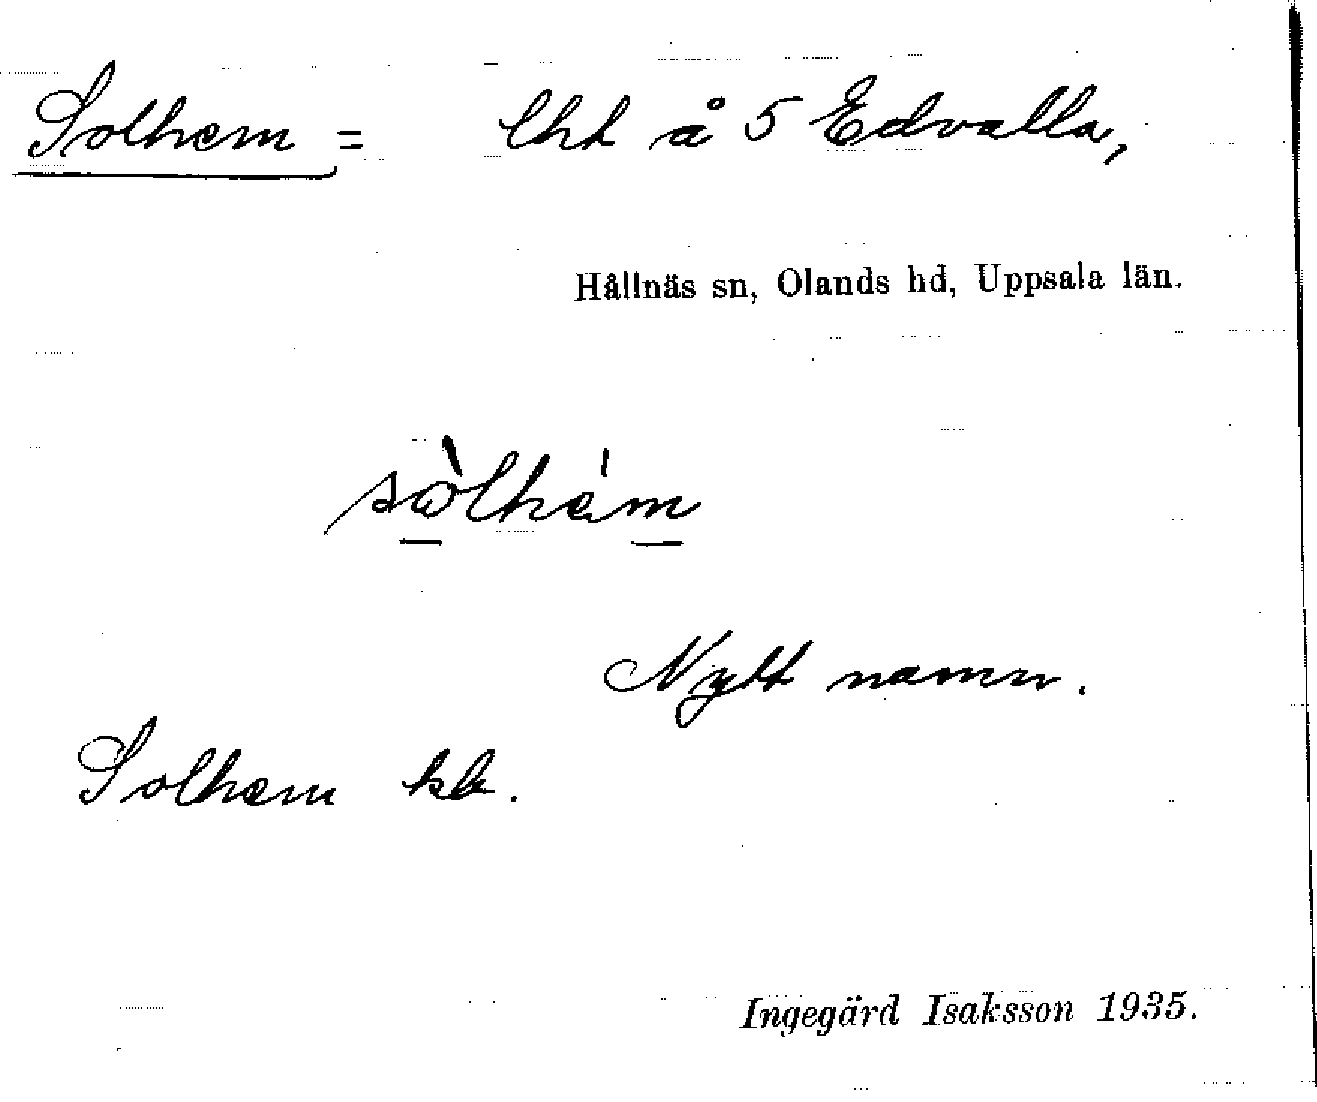 Solhem = lht å 5 Edvalla,
Hållnäs sn, Olands hd, Uppsala län.
sòlhém
Nytt namn.
Solhem kb.
Ingegärd Isaksson 1935.